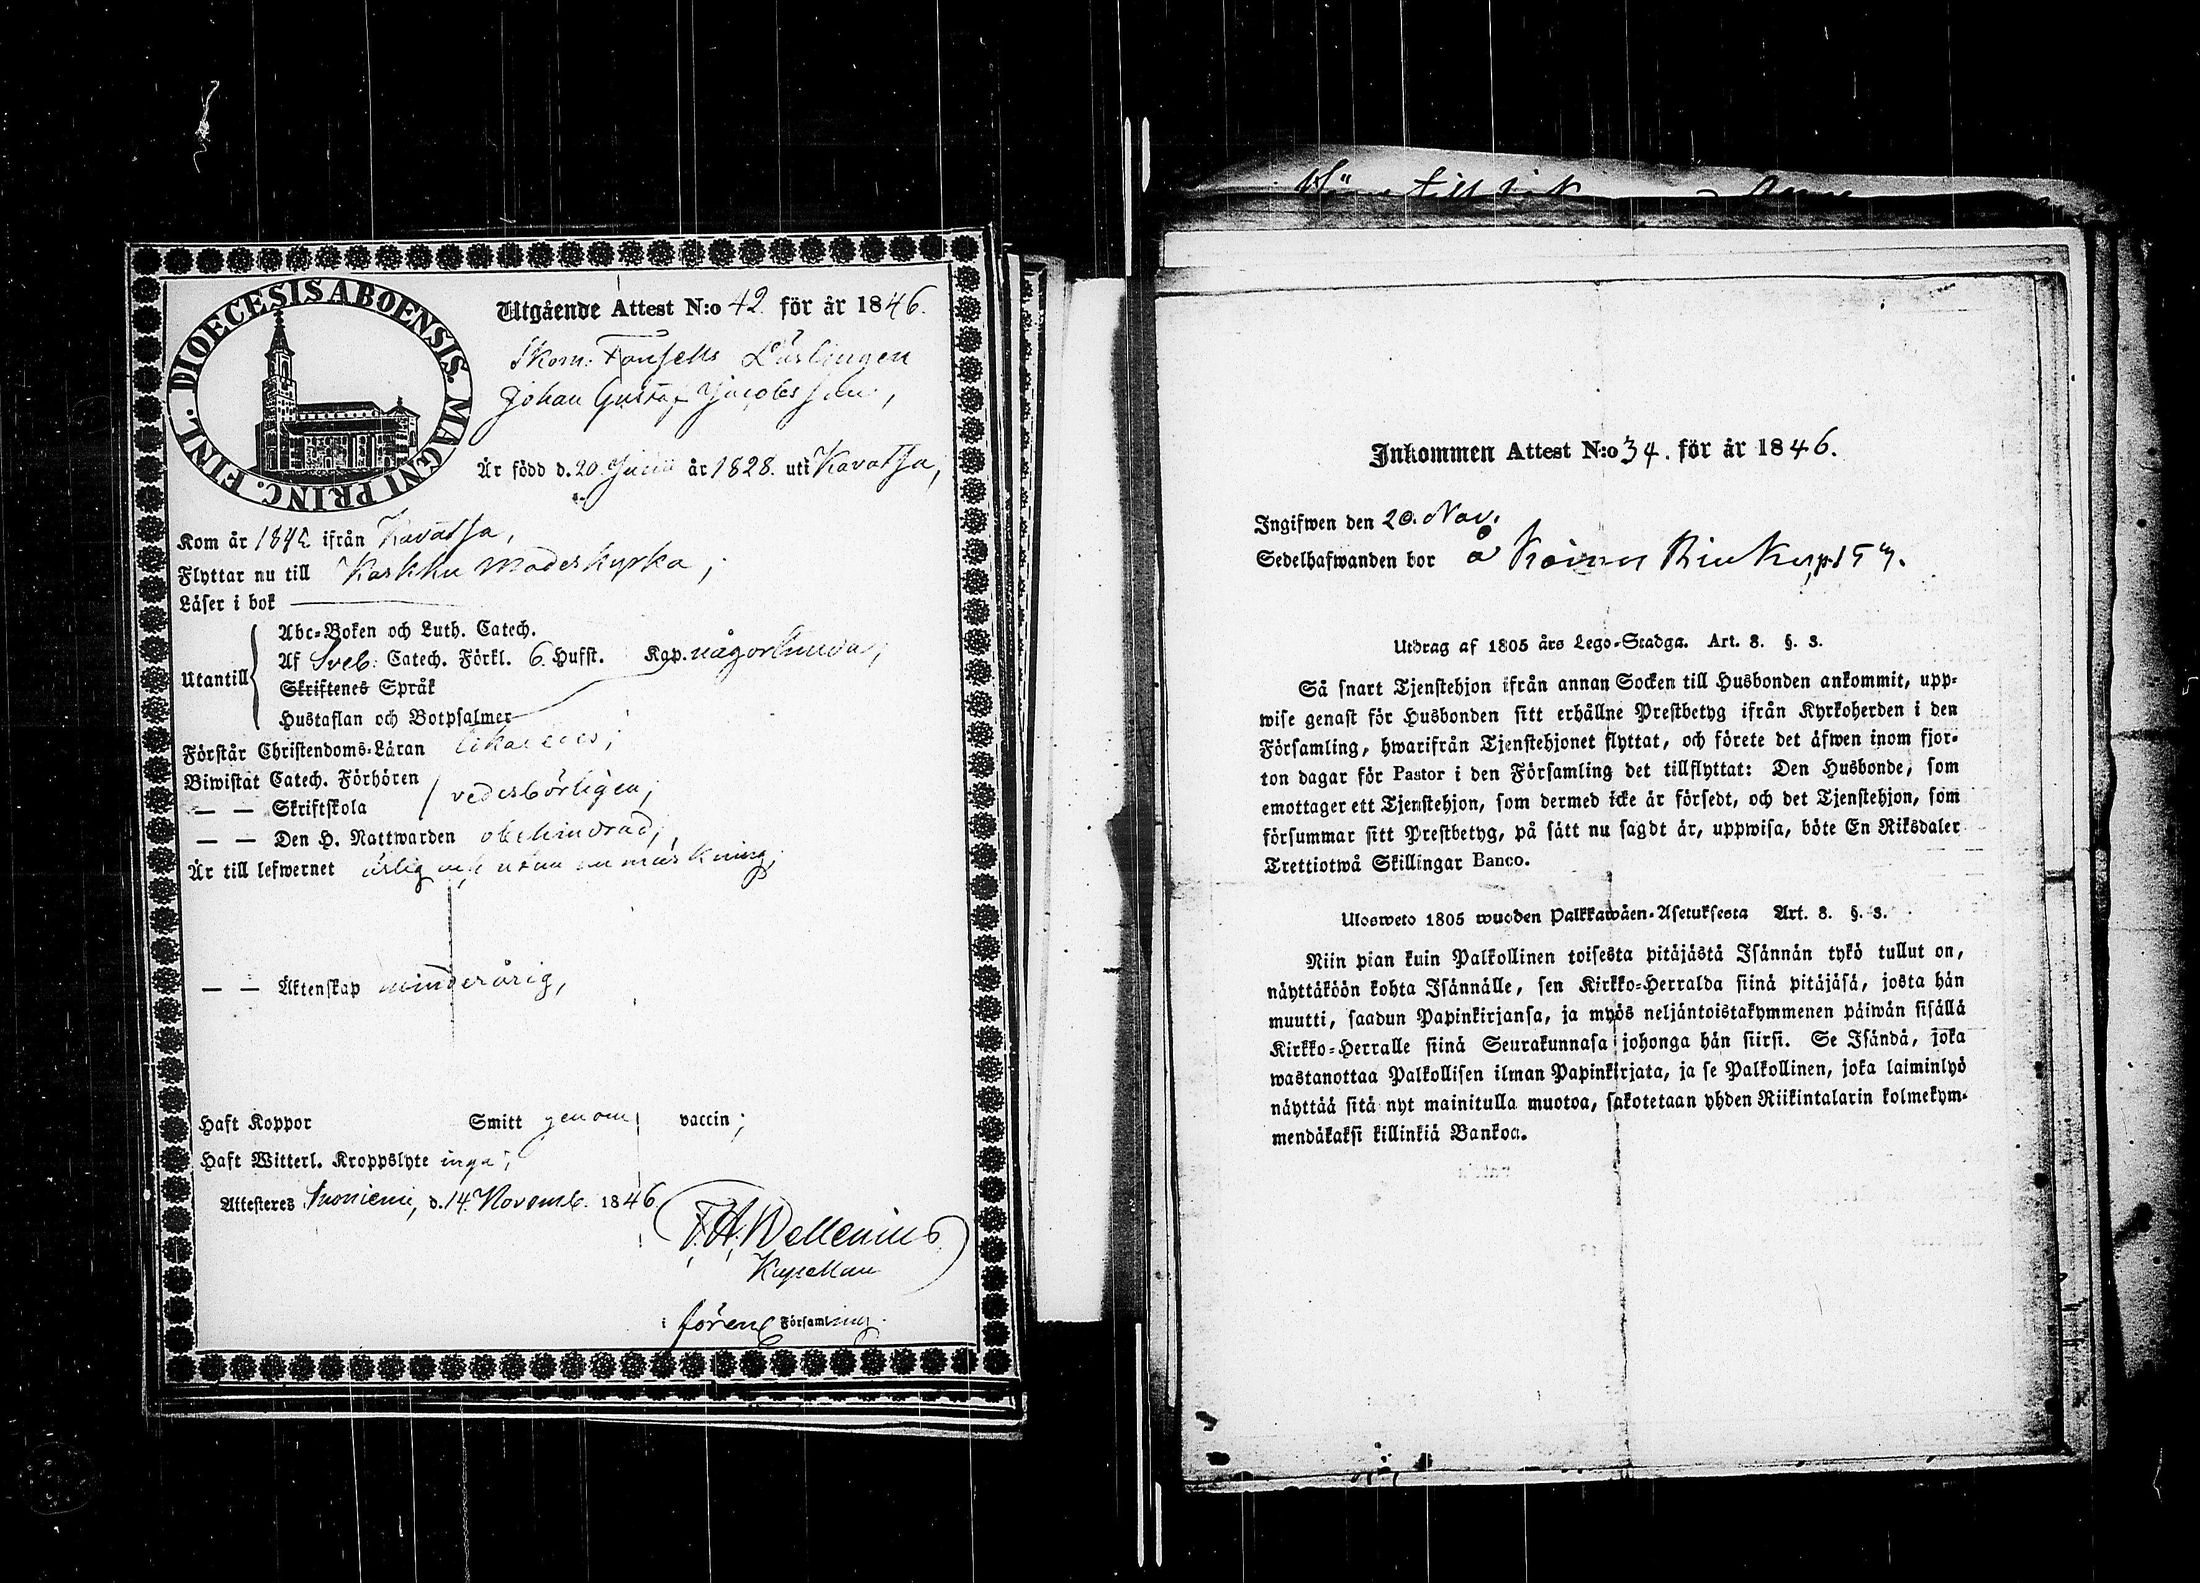 DIOECESIS ABOENSIS. MAGNI PRINC. FINL.
Utgående Attest N:o 42. för år 1846.
Skom. Lärlingen
Johan Gustaf Jacobsson,
Är född d. 20. år 1828. uti Kavatsa,
Kom år 1842 ifrån Kavatsa,
Flyttar nu till Karkku Moderkyrka,
Läser i bok
Utantill
Abc-Boken och Luth. Catech.
Af Sveb: Catech. Förkl. 6. Hufst. Kap. någorlunda,
Skriftenes Språk
Hustaflan och Botpsalmer
Förstår Christendoms-Läran likaledes;
Biwistat Catech. Förhören
— — Skriftskola vederbörligen;
— — Den H. Nattwarden obehindrad;
Är till lefwernet ärlig och utan anmärkning,
— — Äktenskap minderårig,
Haft Koppor Smitt genom vaccin;
Haft Witterl. Kroppslyte inga;
Attesteres Suoniemi, d. 14. Novemb. 1846.
Wellenius
Kapellan
i Församling.
Inkommen Attest N:o 34. för år 1846.
Ingifwen den 20. Nov.
Sedelhafwanden bor å
Utdrag af 1805 års Lego-Stadga. Art. 8. §. 3.
Så snart Tjenstehjon ifrån annan Socken till Husbonden ankommit, upp-
wise genast för Husbonden sitt erhållne Prestbetyg ifrån Kyrkoherden i den
Församling, hwarifrån Tjenstehjonet flyttat, och förete det äfwen inom fjor-
ton dagar för Pastor i den Församling det tillflyttat: Den Husbonde, som
emottager ett Tjenstehjon, som dermed icke är försedt, och det Tjenstehjon, som
försummar sitt Prestbetyg, på sätt nu sagdt är, uppwisa, böte En Riksdaler
Trettiotwå Skillingar Banco.
Ulosweto 1805 wuoden Palkkawäen-Asetuksesta Art. 8. §. 3.
Niin pian kuin Palkollinen toisesta pitäjästä Isännän tykö tullut on,
näyttäköön kohta Isännälle, sen Kirkko-Herralda siinä pitäjäsä, josta hän
muutti, saadun Papinkirjansa, ja myös neljäntoistakymmenen päiwän sisällä
Kirkko-Herralle siinä Seurakunnasa johonga hän siirsi. Se Isändä, joka
wastanottaa Palkollisen ilman Papinkirjata, ja se Palkollinen, joka laiminlyö
näyttää sitä nyt mainitulla muotoa, sakotetaan yhden Riikintalarin kolmekym-
mendäkaksi killinkiä Bankoa.